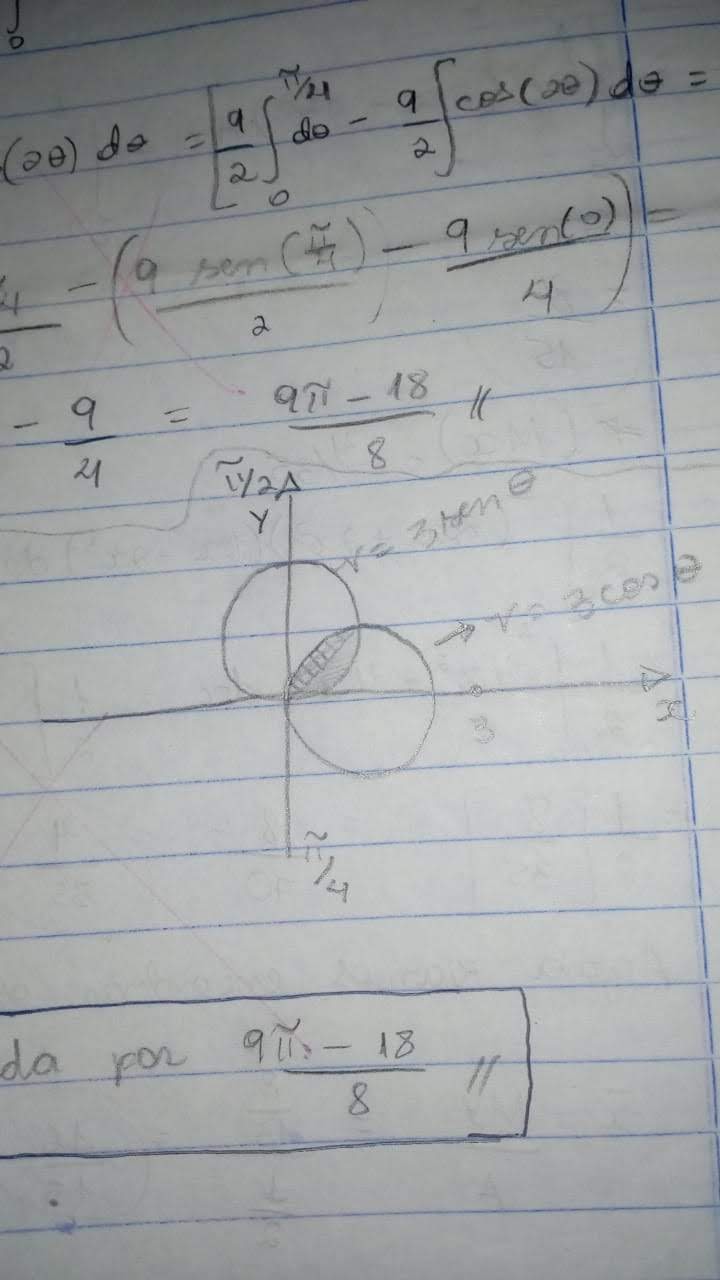 ∫₀
(2θ) dθ = [9/2 ∫₀^(π/4) dθ - 9/2 ∫cos(2θ) dθ =
- (9 sen(π/π)/2 - 9 sen(0)/4) =
- 9/4 = (9π - 18)/8 //
π/2
Y
r = 3 sen θ
→ r = 3 cos θ
3
x
π/4
da por (9π - 18)/8 //